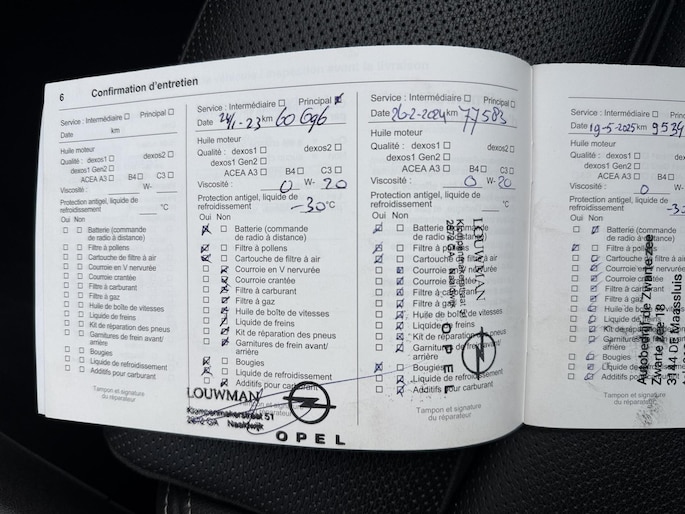 6 Confirmation d'entretien
Service : Intermédiaire ☐ Principal ☐
Date km
Huile moteur
Qualité : dexos1 ☐ dexos2 ☐
dexos1 Gen2 ☐
ACEA A3 ☐ B4 ☐ C3 ☐
Viscosité : W-
Protection antigel, liquide de
refroidissement °C
Oui Non
☐ ☐ Batterie (commande
de radio à distance)
☐ ☐ Filtre à pollens
☐ ☐ Cartouche de filtre à air
☐ ☐ Courroie en V nervurée
☐ ☐ Courroie crantée
☐ ☐ Filtre à carburant
☐ ☐ Filtre à gaz
☐ ☐ Huile de boîte de vitesses
☐ ☐ Liquide de freins
☐ ☐ Kit de réparation des pneus
☐ ☐ Garnitures de frein avant/
arrière
☐ ☐ Bougies
☐ ☐ Liquide de refroidissement
☐ ☐ Additifs pour carburant
Tampon et signature
du réparateur
Service : Intermédiaire ☐ Principal ☒
Date km 60696
Huile moteur
Qualité : dexos1 ☐ dexos2 ☐
dexos1 Gen2 ☐
ACEA A3 ☐ B4 ☐ C3 ☐
Viscosité : 0 W- 20
Protection antigel, liquide de
refroidissement -30 °C
Oui Non
☒ ☐ Batterie (commande
de radio à distance)
☒ ☐ Filtre à pollens
☒ ☐ Cartouche de filtre à air
☐ ☒ Courroie en V nervurée
☐ ☒ Courroie crantée
☐ ☒ Filtre à carburant
☐ ☒ Filtre à gaz
☐ ☒ Huile de boîte de vitesses
☐ ☒ Liquide de freins
☐ ☒ Kit de réparation des pneus
☐ ☒ Garnitures de frein avant/
arrière
☒ ☐ Bougies
☐ ☒ Liquide de refroidissement
☐ ☒ Additifs pour carburant
Tampon et signature
du réparateur
LOUWMAN
Klompenmakerstraat 51
2672 GA Naaldwijk
OPEL
Service : Intermédiaire ☐ Principal ☐
Date 26-2-2024 km 77583
Huile moteur
Qualité : dexos1 ☐ dexos2 ☐
dexos1 Gen2 ☐
ACEA A3 ☐ B4 ☐ C3 ☐
Viscosité : 0 W- 20
Protection antigel, liquide de
refroidissement -30 °C
Oui Non
☒ ☐ Batterie (commande
de radio à distance)
☒ ☐ Filtre à pollens
☒ ☐ Cartouche de filtre à air
☐ ☒ Courroie
☐ ☒ Courroie crantée
☐ ☒ Filtre à carburant
☐ ☒ Filtre à gaz
☐ ☒ Huile de boîte de vitesses
☐ ☒ Liquide de freins
☐ ☒ Kit de réparation des pneus
☐ ☒ Garnitures de frein avant/
arrière
☒ ☐ Bougies
☐ ☒ Liquide de refroidissement
☐ ☒ Additifs pour carburant
Tampon et signature
du réparateur
LOUWMAN
2672 GA Naaldwijk
OPEL
Service : Intermédiaire
Date 19-5-2025 km 9534
Huile moteur
Qualité : dexos1 ☐
dexos1 Gen2 ☐
ACEA A3 ☐
Viscosité : 0
Protection antigel, liquide de
refroidissement
Oui Non
☐ ☒ Batterie (commande
de radio à distance)
☒ ☐ Filtre à pollens
☐ ☒ Cartouche
☐ ☒ Courroie
☐ ☒ Courroie
☐ ☒ Filtre à
☐ ☒ Filtre à
☐ ☒ Huile de
☐ ☒ Liquide
☐ ☒ Kit de
☐ ☒ Garnitures
arrière
☐ ☒ Bougies
☐ ☒ Liquide
☐ ☒ Additifs
Tampon
du
Autobedrijf de Zwarte Zee
Zwarte Zee 18
3144 D Maassluis